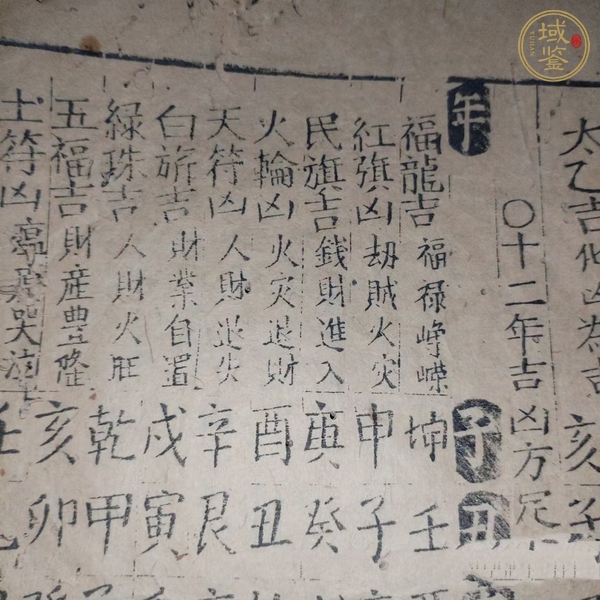 太乙吉化凶為吉 亥
〇十二年吉凶方
年 子 丑
福龍吉 福祿崢嶸 坤 壬
紅旗凶 劫賊火灾 申 子
民旗吉 錢財進入 庚 癸
火輪凶 火灾退財 酉 丑
天符凶 人財退失 辛 艮
白旂吉 財業自置 戌 寅
綠珠吉 人財火旺 乾 甲
五福吉 財産豊隆 亥 卯
土符凶 哭泣 壬
域鉴
YUJIAN